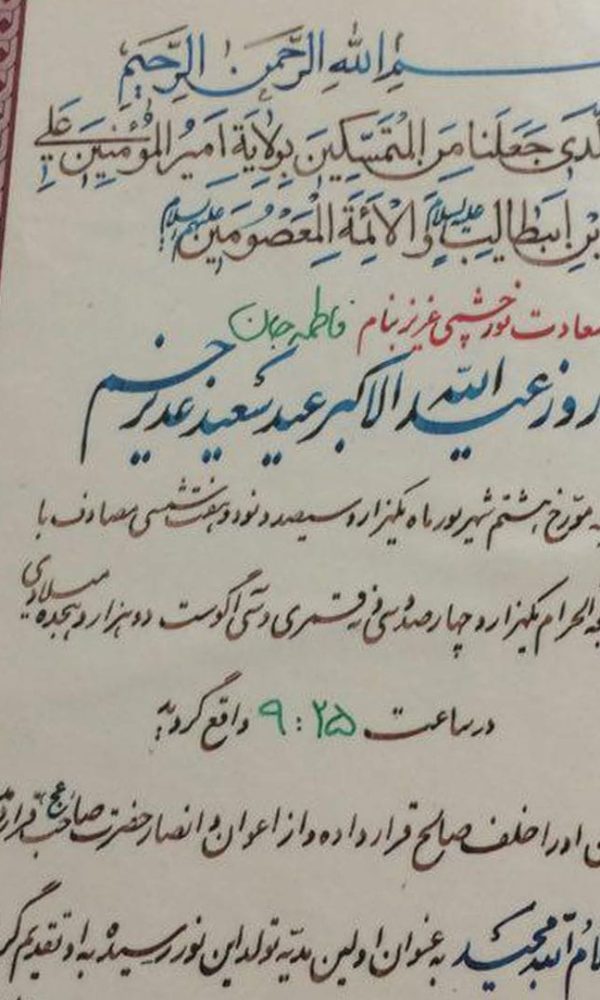 بسم الله الرَّحمنِ الرَّحیم
لَّذی جَعَلَنا مِنَ المُتَمَسِّکینَ بِوِلایَةِ اَمیرُ المُؤمِنینَ عَلی
بنِ ابیطالِبِ علیه السلام وَ الاَئِمَّةِ المَعصُومینَ علیهم السلام
سعادت نور چشمی عزیز بنام فاطمه جان
روز عید الله الاکبر عید سعید غدیر خم
به مورخ هشتم شهریور ماه یکهزار و سیصد و نود و هفت شمسی مصادف با
جه الحرام یکهزار و چهارصد و سی و نه قمری و سی آگوست دو هزار و هجده میلادی
در ساعت ۹:۲۵ واقع گردید
او را خلف صالح قرار داده و از اعوان و انصار حضرت صاحب عج قرار
کلام الله مجید به عنوان اولین هدیه تولد این نور رسیده به او تقدیم